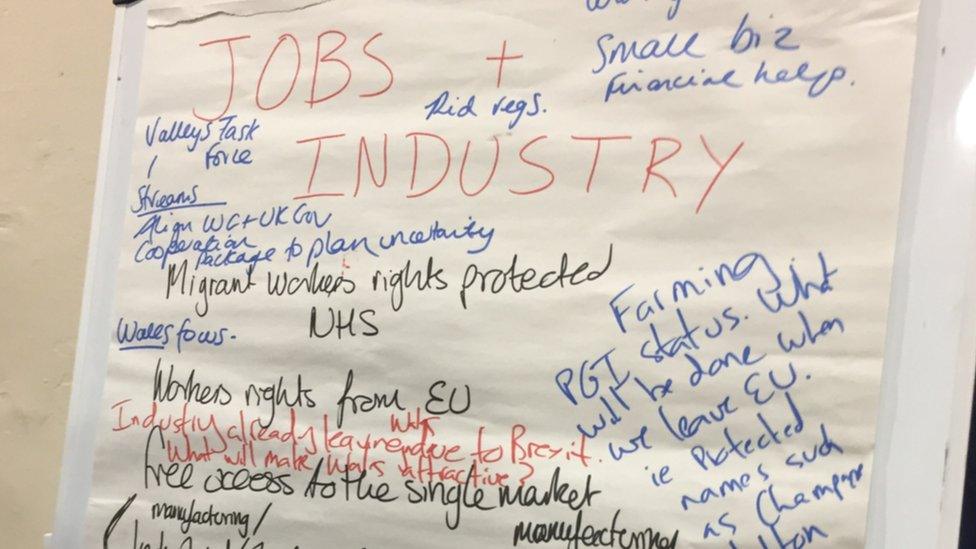 JOBS +
INDUSTRY
Small biz
Financial help.
Rid regs.
Valleys Task
Force
Streams
Align WG + UK Gov
Cooperation
Package to plan uncertainty
Migrant workers rights protected
NHS
Wales focus.
Workers rights from EU
Industry already leaving due to Brexit.
What will make Wales attractive?
free access to the single market
manufacturing/
manufacturing
Farming
PGI status. What
will be done when
we leave EU.
ie Protected
names such
as Champagne